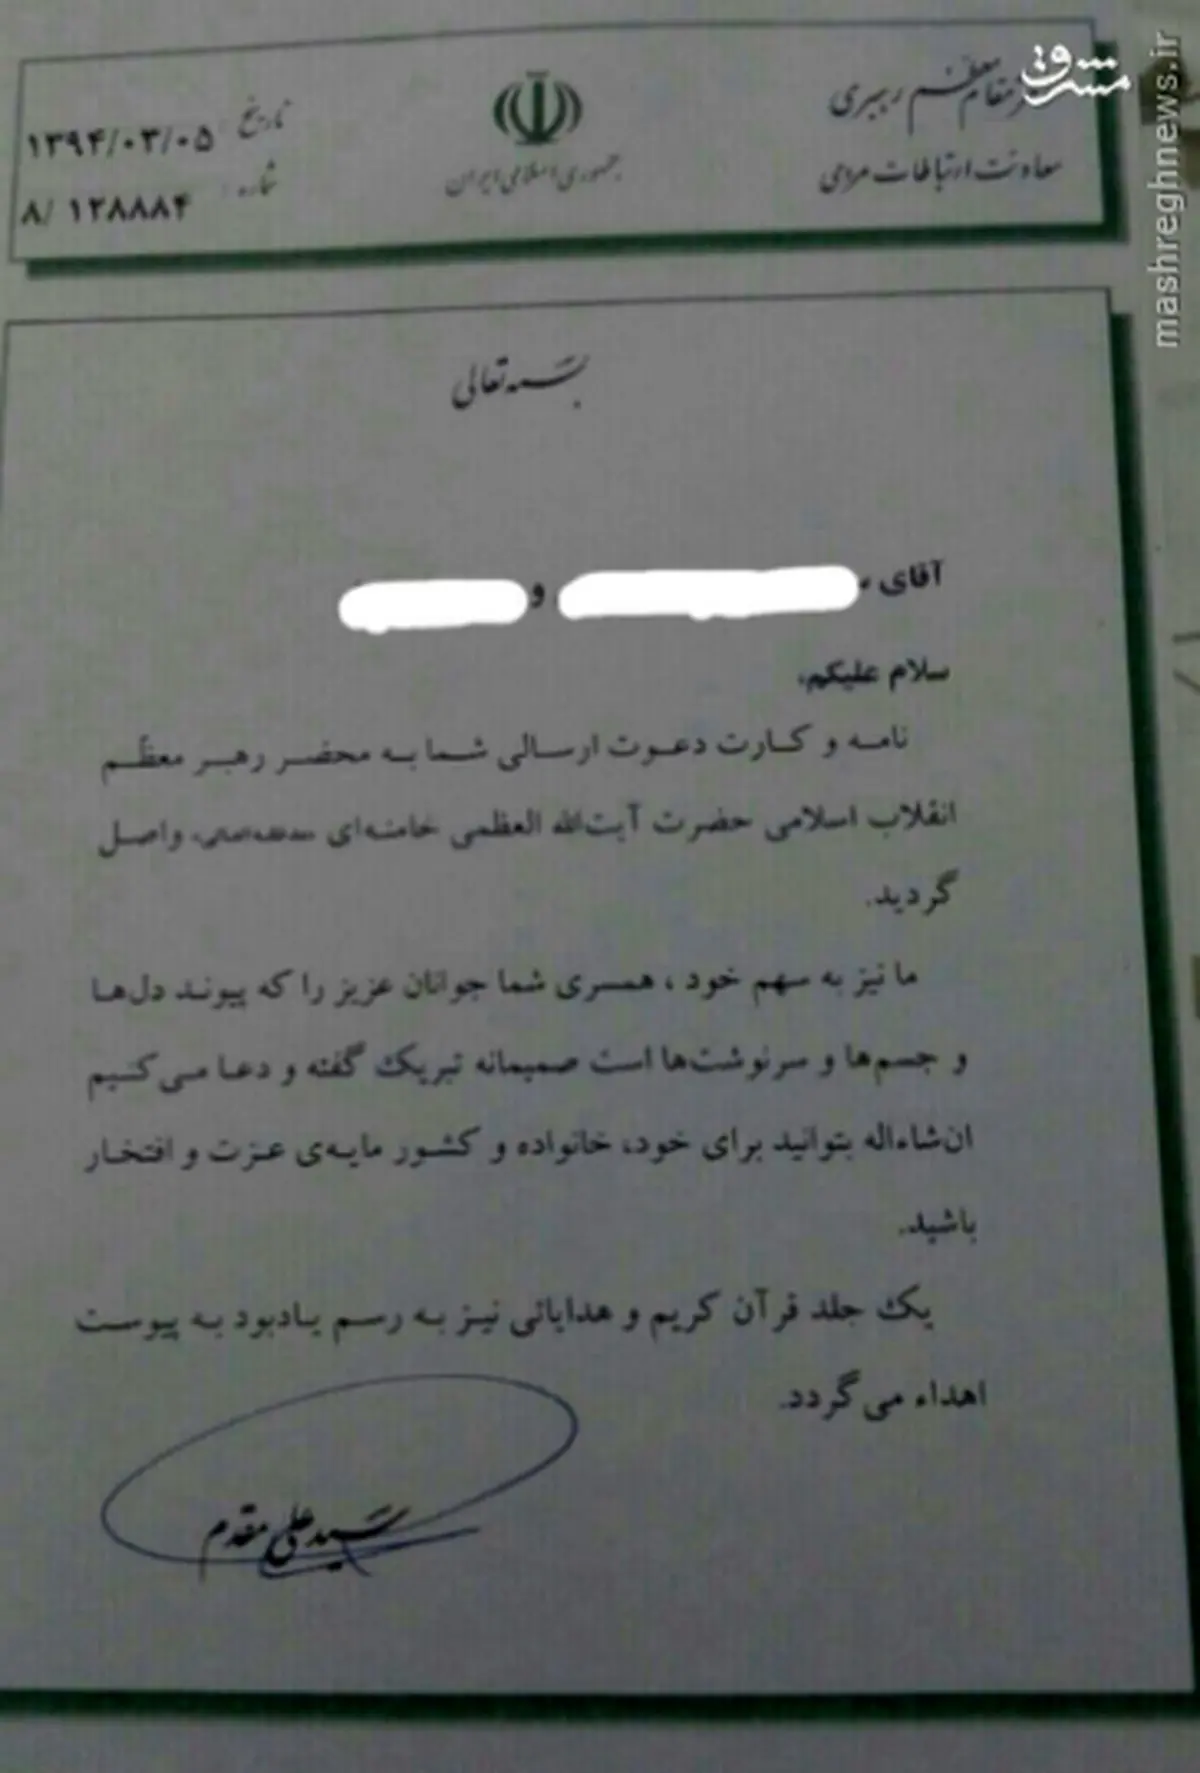 مقام معظم رهبری
معاونت ارتباطات مردمی
جمهوری اسلامی ایران
تاریخ ۱۳۹۴/۰۳/۰۵
شماره ۸/ ۱۲۸۸۸۴
مشرق
mashreghnews.ir
بسمه تعالی
آقای و
سلام علیکم،
نامه و کارت دعوت ارسالی شما به محضر رهبر معظّم
انقلاب اسلامی حضرت آیت‌الله العظمی خامنه‌ای مدظله‌العالی، واصل
گردید.
ما نیز به سهم خود ، همسری شما جوانان عزیز را که پیوند دل‌ها
و جسم‌ها و سرنوشت‌ها است صمیمانه تبریک گفته و دعا می‌کنیم
ان‌شاءاله بتوانید برای خود، خانواده و کشور مایه‌ی عزت و افتخار
باشید.
یک جلد قرآن کریم و هدایائی نیز به رسم یادبود به پیوست
اهداء می‌گردد.
سید علی مقدم